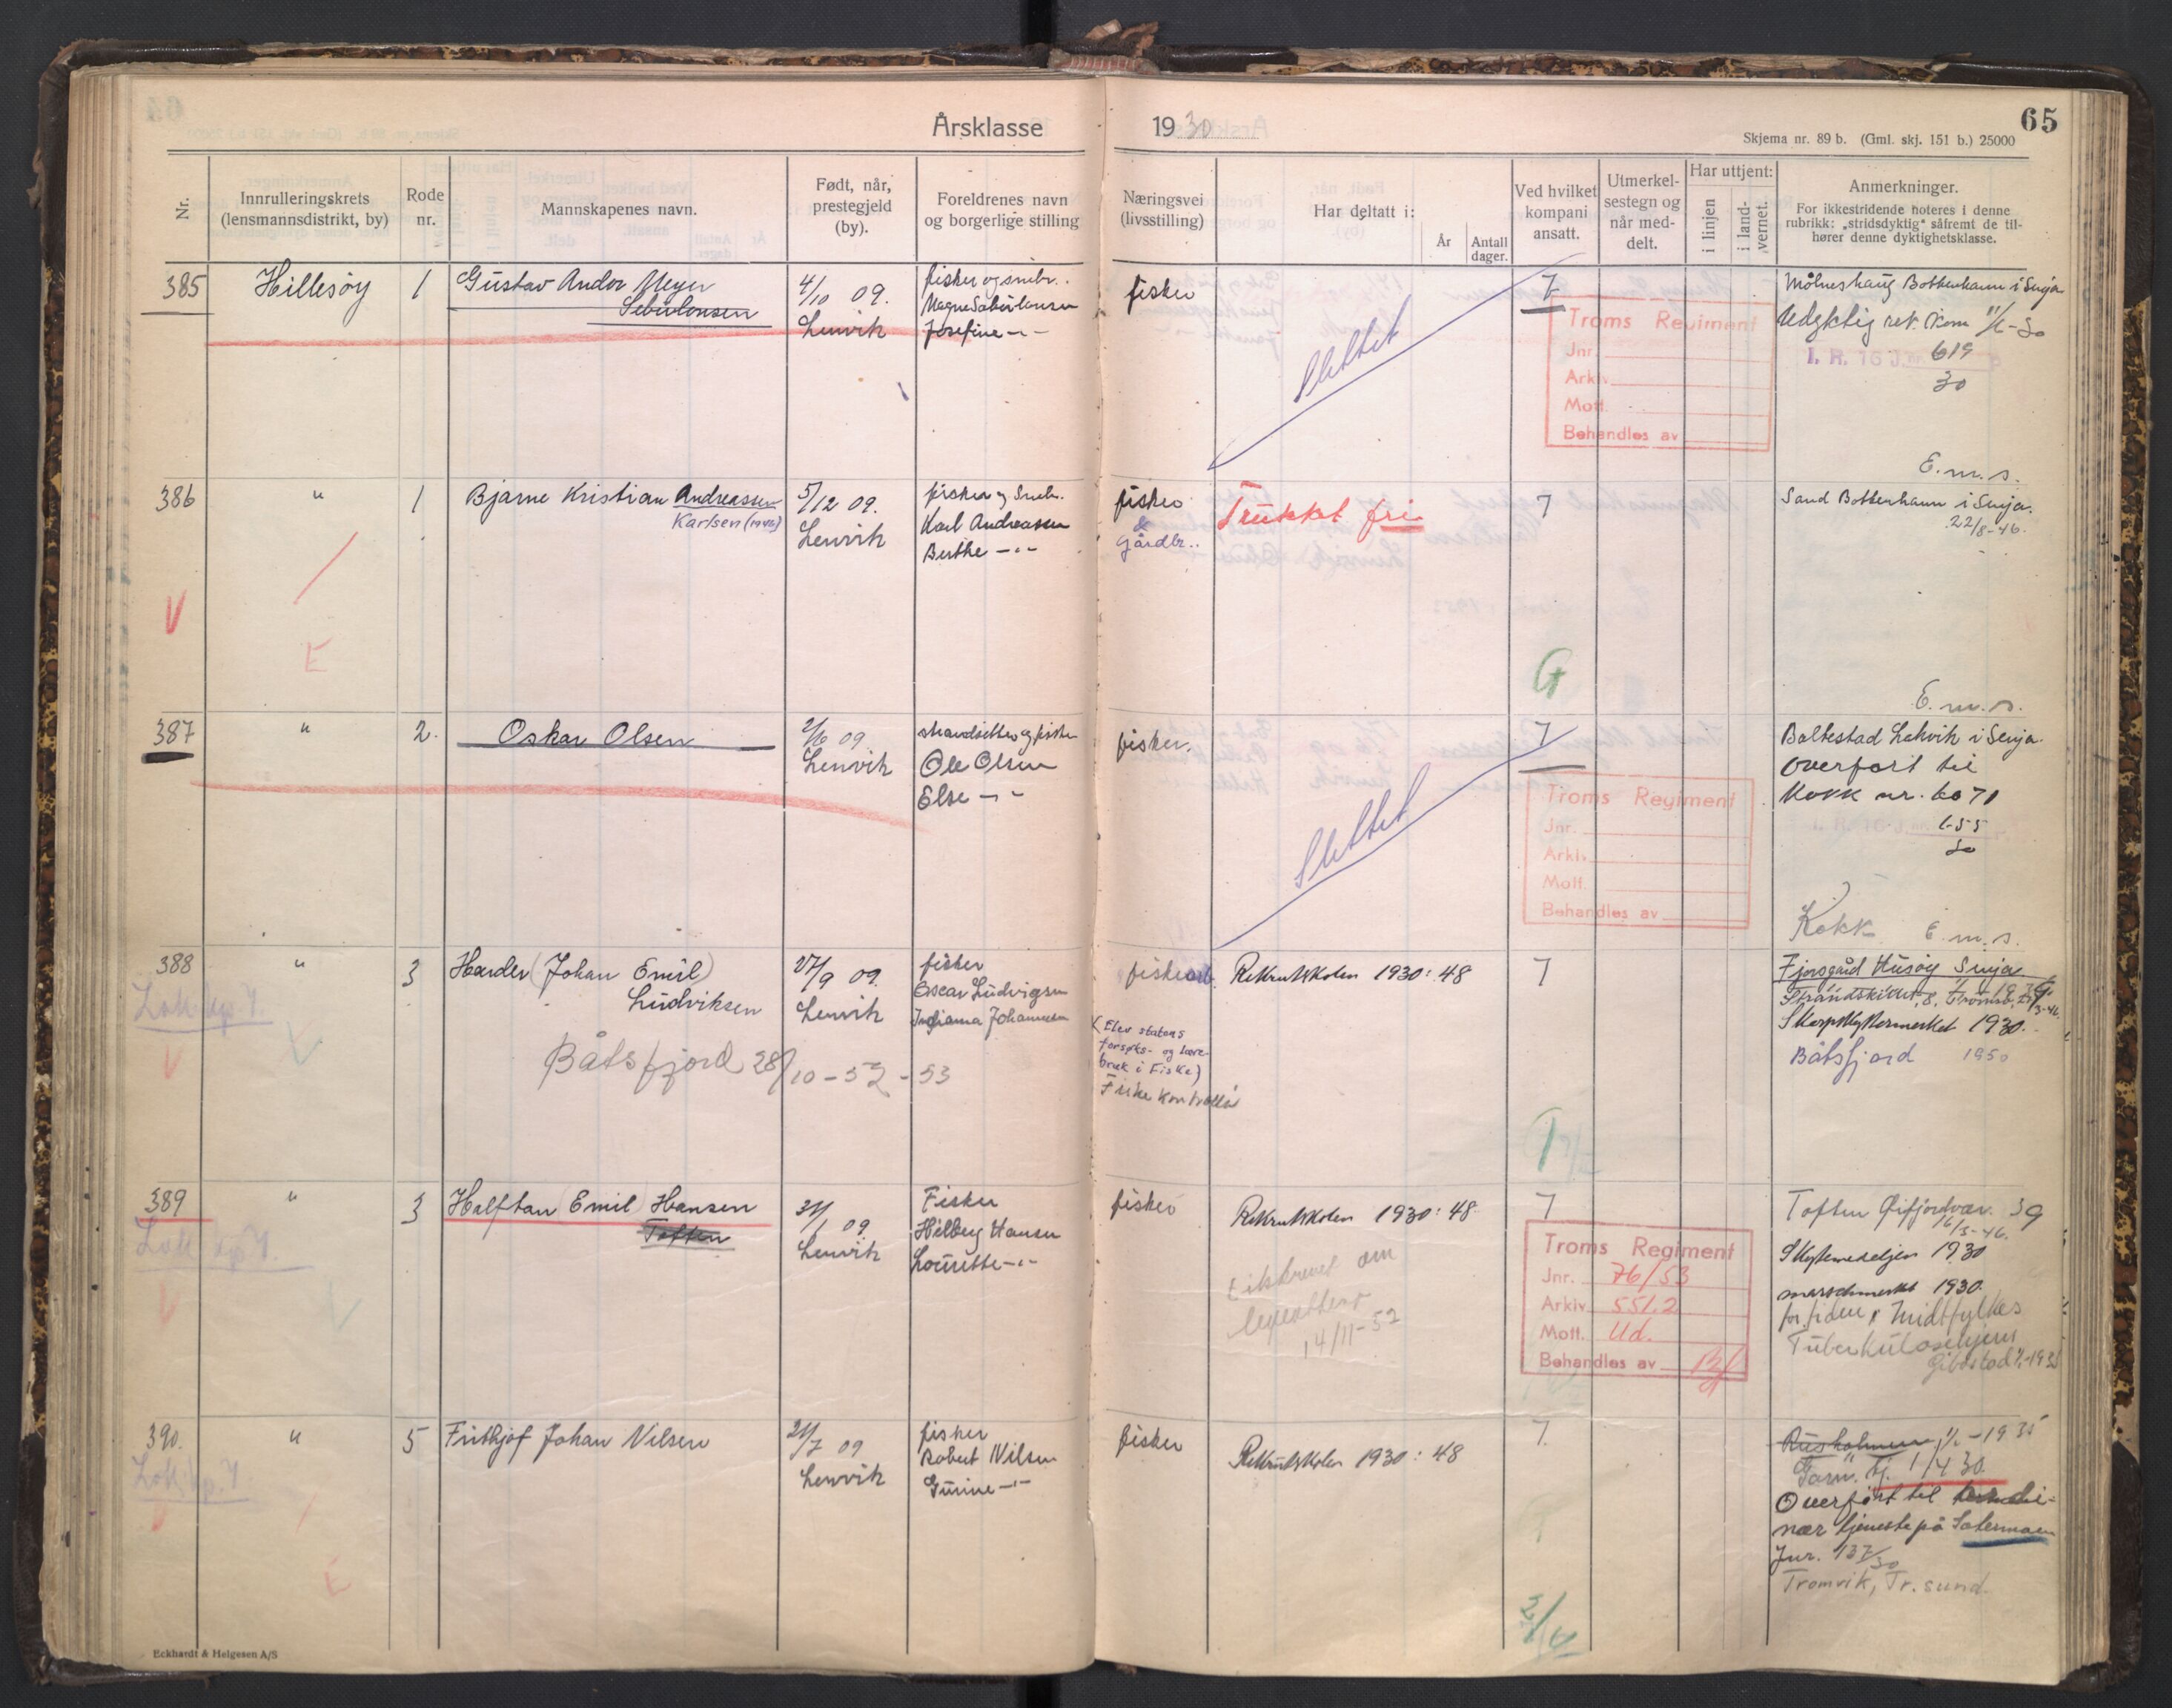 65
Årsklasse 1930
Skjema nr. 89 b. (Gml. skj. 151 b.) 25000
Nr.
Innrulleringskrets
(lensmannsdistrikt, by)
Rode
nr.
Mannskapenes navn.
Født, når,
prestegjeld
(by).
Foreldrenes navn
og borgerlige stilling
Næringsvei
(livsstilling)
Har deltatt i:
År
Antall
dager.
Ved hvilket
kompani
ansatt.
Utmerkel-
sestegn og
når med-
delt.
Har uttjent:
i linjen
i land-
vernet.
Anmerkninger.
For ikkestridende noteres i denne
rubrikk: „stridsdyktig“ såfremt de til-
hører denne dyktighetsklasse.
385
Hillesøy
1
Gustav Andor Meyer
4/10 09.
Lenvik
fisker og småbr.
Josefine -"-
fisker
Slettet
7
Troms Regiment
Jnr.
Arkiv
Mott.
Behandles av
Bottenhavn i Senja
Udyktig
I. R. 16 J.nr. 619
30
E.m.s.
386
"
1
Bjarne Kristian Andreassen
Karlsen (1946)
5/12 09.
Lenvik
fisker og Småbr.
Karl Andreassen
Berthe -"-
fisker
&
gårdbr.
Trukket fri
7
G
Sand Bottenhavn i Senja.
22/8-46.
E.m.s.
V
E
387
"
2.
Oskar Olsen
2/6 09
Lenvik
strandsitter og fisker
Ole Olsen
Else -"-
fisker.
Slettet
7
Troms Regiment
Jnr.
Arkiv
Mott.
Behandles av
Baltestad Lekvik i Senja.
Overført til
Kokk E.m.s.
388
"
3
Harder (Johan Emil)
Ludviksen
27/9 09.
Lenvik
fisker
Oscar Ludvigsen
Båtsfjord 28/10-52-53
(Elev statens
forsøks- og lære-
bruk i Fiske)
Fiske kontrollør
Rekrutskolen 1930: 48
7
T
Fjorgård Husøy Senja
Skarpskyttermerket 1930.
Båtsfjord 1950
V
389
"
3
Halftan Emil Hansen
Toften
31/1 09.
Lenvik
Fisker
Hilberg Hansen
Lourette -"-
fisker
Rekrutskolen 1930: 48
tilskrevet om
14/11-52
7
Troms Regiment
Jnr. 76/53
Arkiv 551.2
Mott. Ud.
Behandles av
Toften Gifjordvær. 39
16/3-46.
Skyttemedaljen 1930
marschmerket 1930.
for tiden Midtfylkes
Tuberkulosehjem
Gibostad
V
390.
"
5
Frithjof Johan Nilsen
21/7 09
Lenvik
fisker
Robert Nilsen
Gurine -"-
fisker
Rekrutskolen 1930: 48
7.
Rusholmen
Garn. tj. 1/4 30
Overført til
nær tjeneste på Setermoen
Jnr. 137/30
Tromvik, Tr. sund.
E
Eckhardt & Helgesen A/S